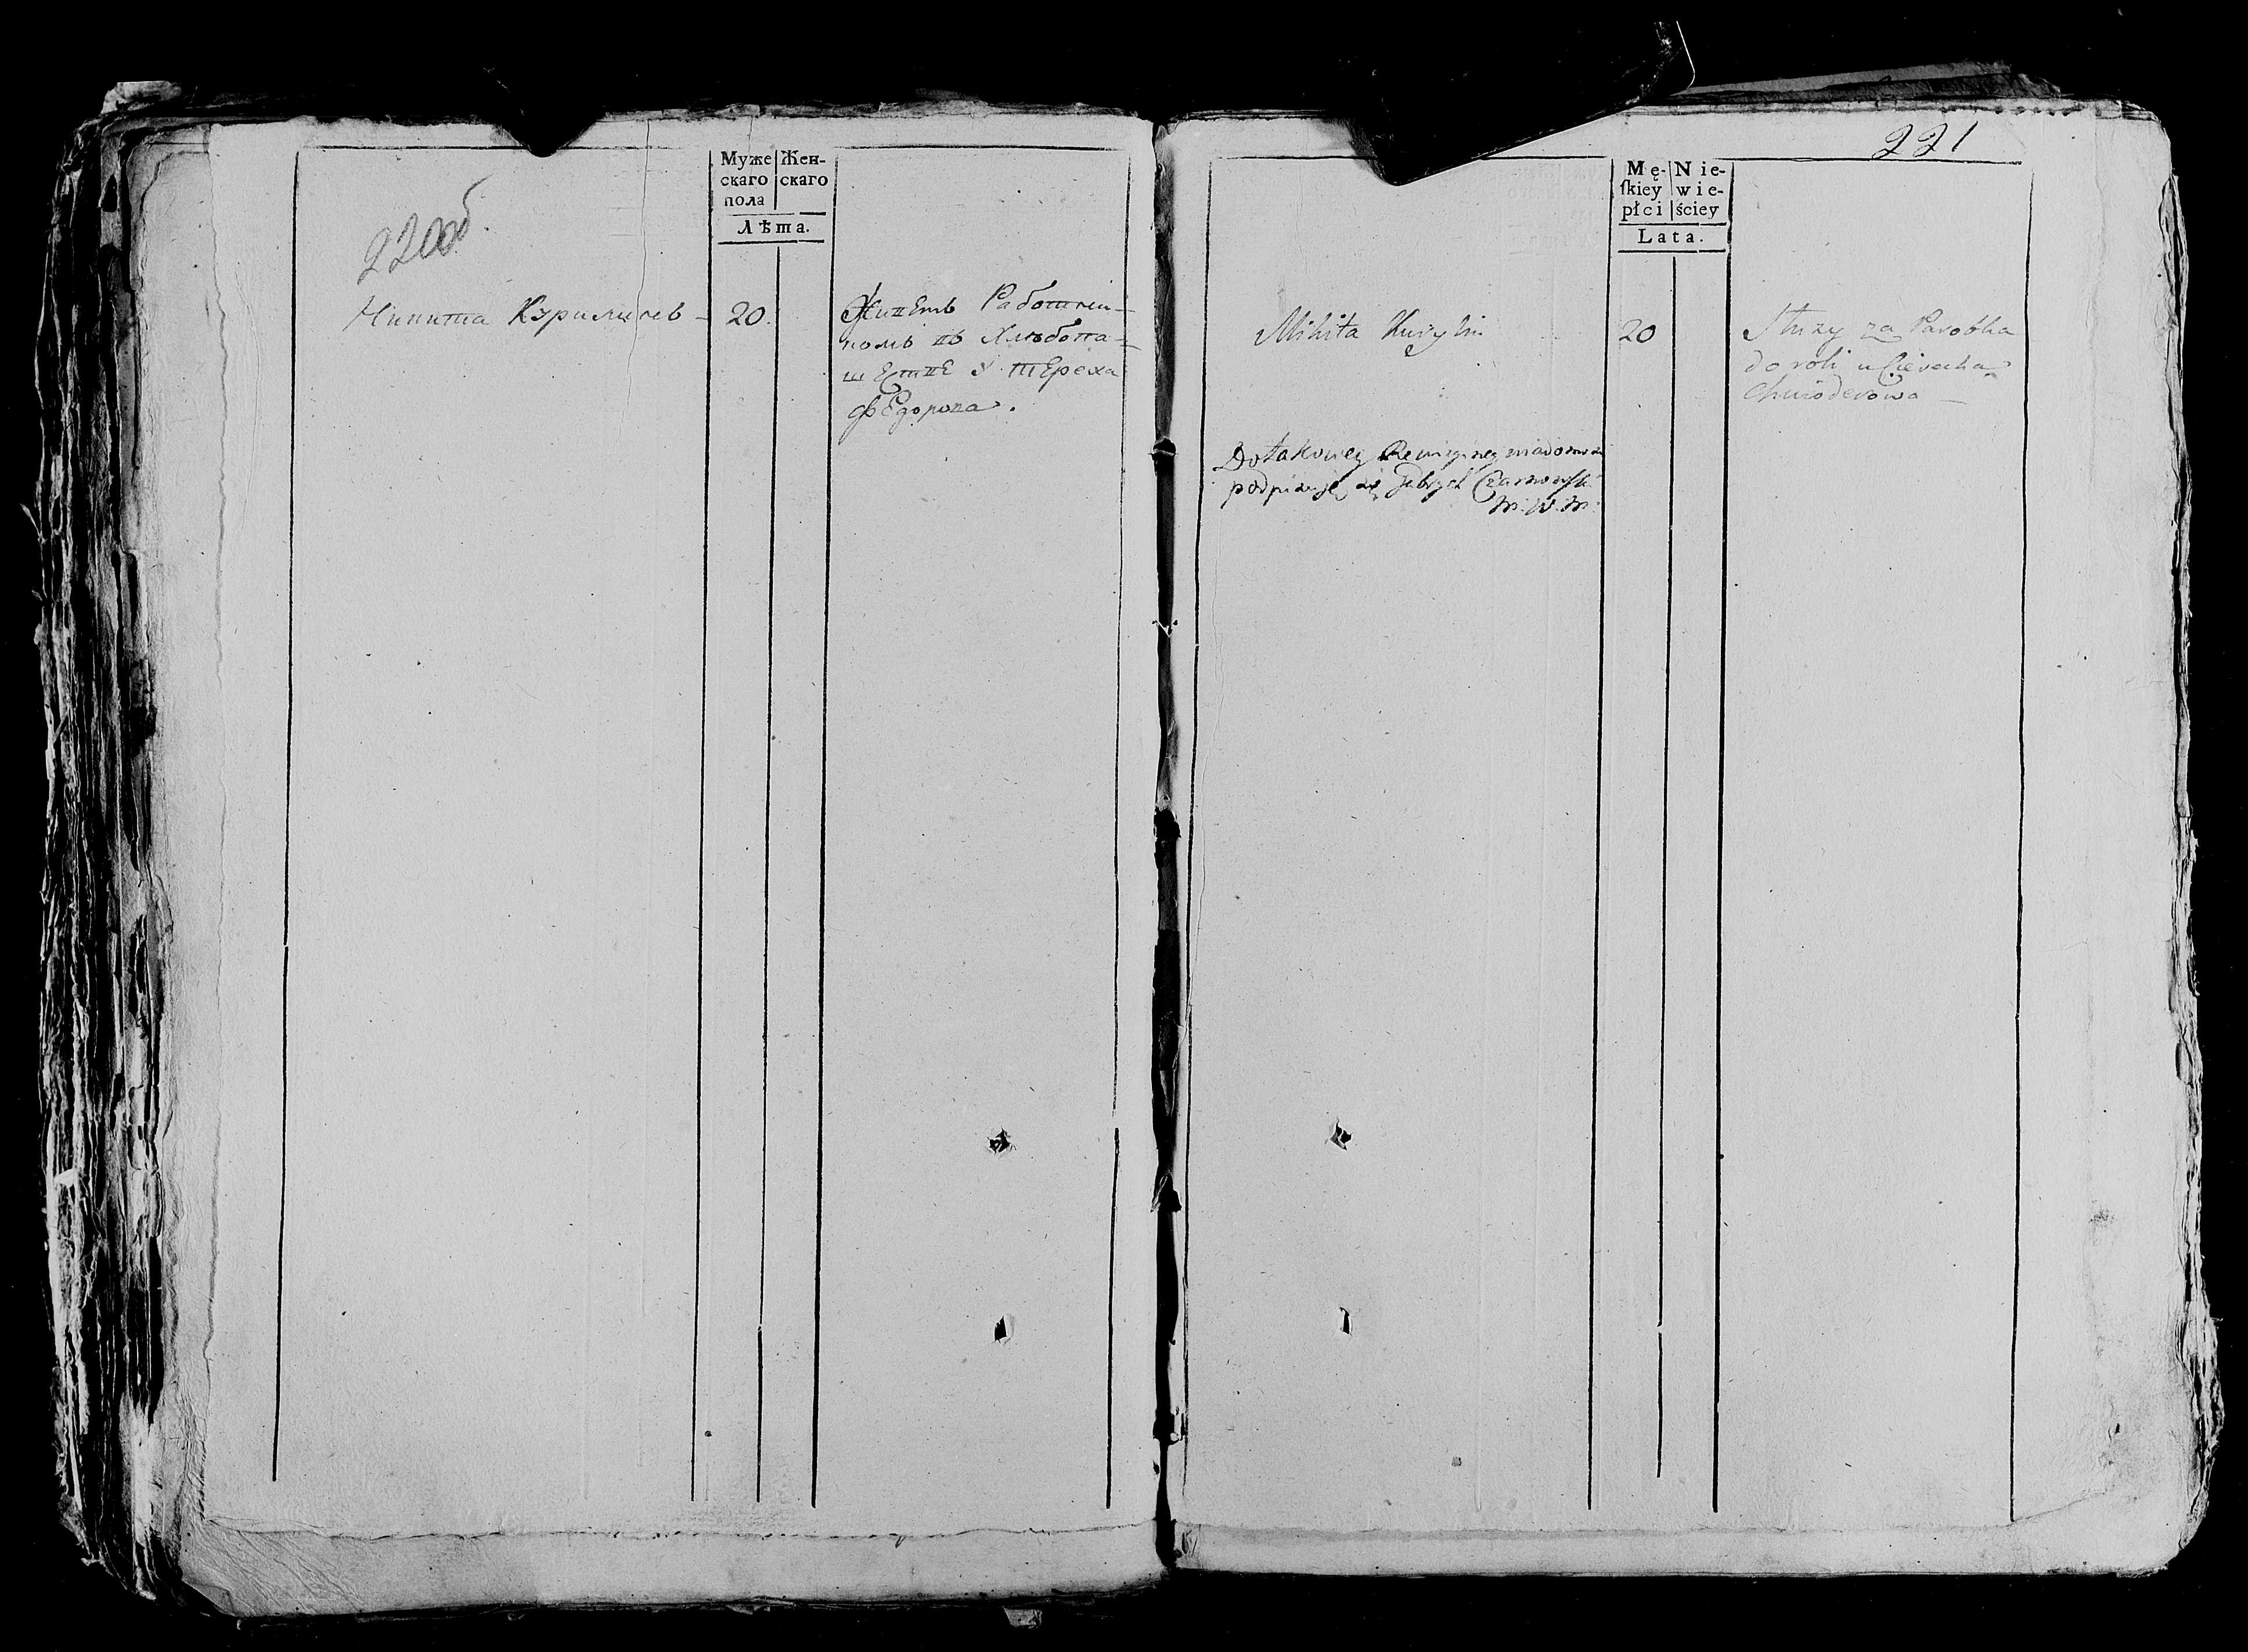 220об.
Муже
скаго
пола
Жен-
скаго
Лѣта.
Никита Курилчевъ
20.
Живетъ Работни-
комъ въ Хлѣбопа-
шестве у Тереха
Федорова.
221
Mę-
ſkiey
płci
Nie-
wie-
ściey
Lata.
Mikita Kurylin
20
Służy za Parobka
do roli u Cierecha
Do takowey Rewizyney wiadomości
podpisuję się Jdbrych Czarnowski
m. w. m.